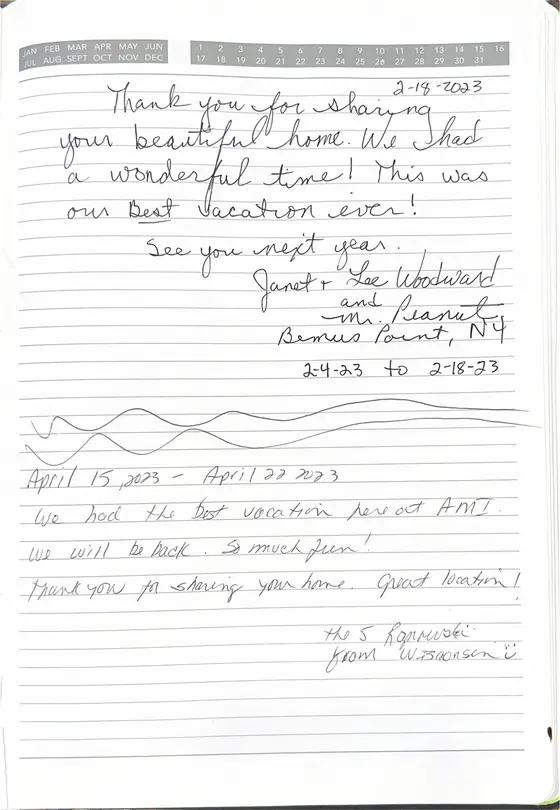 JAN FEB MAR APR MAY JUN
JUL AUG SEPT OCT NOV DEC
1 2 3 4 5 6 7 8 9 10 11 12 13 14 15 16
17 18 19 20 21 22 23 24 25 26 27 28 29 30 31
2-18-2023
Thank you for sharing
your beautiful home. We had
a wonderful time! This was
our Best vacation ever!
See you next year.
Janet + Lee Woodward
and
Mr. Peanut
Bemus Point, NY
2-4-23 to 2-18-23
April 15, 2023 - April 22 2023
We had the best vacation here at AMI.
We will be back. So much fun!
Thank you for sharing your home. Great location!
the 5
from Wisconsin